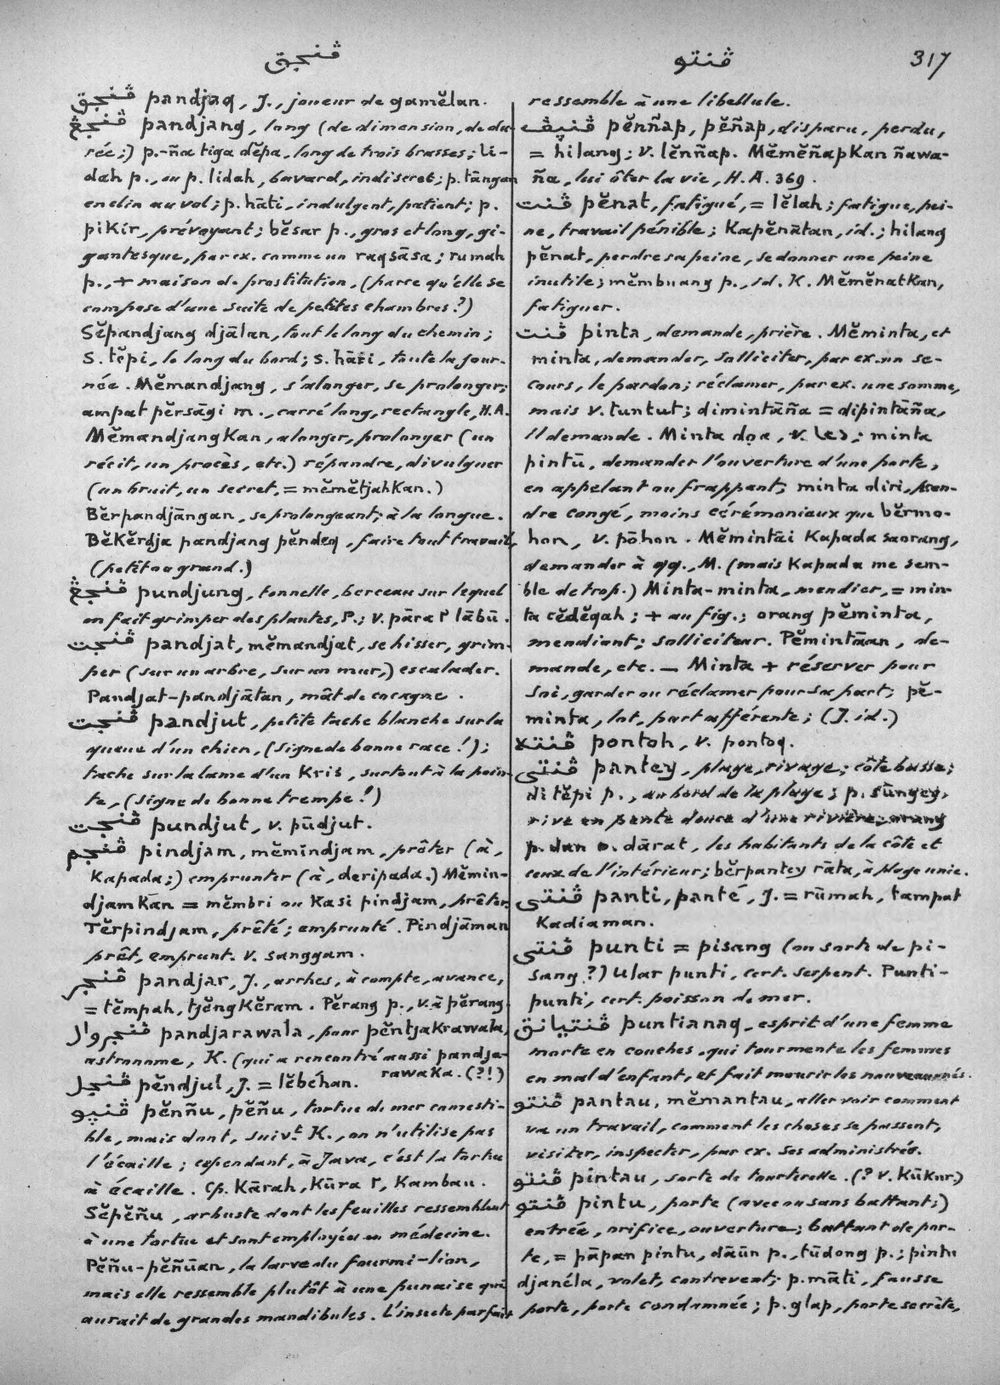 ڤنجق
ڤنتو
317
ڤنجق pandjaq, J., joueur de gamĕlan.
ڤنجڠ pandjang, long (de dimension, de du-
rée;) p.-ña tiga dĕpa, long de trois brasses; li-
dah p., ou p. lidah, bavard, indiscret; p. tāngan
enclin au vol; p. hāti, indulgent, patient; p.
pikir, prévoyant; bĕsar p., gros et long, gi-
gantesque, par ex. comme un raqsāsa; rumah
p., + maison de prostitution, (parce qu'elle se
compose d'une suite de petites chambres?)
Sĕpandjang djālan, tout le long du chemin;
S. tĕpi, le long du bord; s. hāri, toute la jour-
née. Mĕmandjang, s'alonger, se prolonger;
ampat pĕrsāgi m., carré long, rectangle, H.A.
Mĕmandjangkan, alonger, prolonger (un
récit, un procès, etc.) répandre, divulguer
(un bruit, un secret, = mĕnĕtjahkan.)
Bĕrpandjāngan, se prolongeant; à la longue.
Bĕkĕrdja pandjang pĕndeq, faire tout travail,
(petit ou grand.)
ڤنجڠ pundjung, tonnelle, berceau sur lequel
on fait grimper des plantes, P.; v. pāra ٢ lābū.
ڤنجت pandjat, mĕmandjat, se hisser, grim-
per (sur un arbre, sur un mur,) escalader.
Pandjat-pandjātan, mât de cocagne.
ڤنجت pandjut, petite tache blanche sur la
queue d'un chien, (signe de bonne race!);
tache sur la lame d'un Kris, surtout à la poin-
te, (signe de bonne trempe!)
ڤنجت pundjut, v. pūdjut.
ڤنجم pindjam, mĕmindjam, prêter (à,
kapada;) emprunter (à, deripada.) Mĕmin-
djamkān = mĕmbri ou kasi pindjam, prêter.
Tĕrpindjam, prêté; emprunté. Pindjāman
prêt, emprunt. v. sanggam.
ڤنجر pandjar, J., arrhes, à compte, avance,
= tĕmpah, tjĕngkĕram. Pĕrang p., v. à pĕrang.
ڤنجروال pandjarawala, pour pĕntjakrawala,
astronome, K. (qui a rencontré aussi pandja-
rawaka. (?!)
ڤنجل pĕndjul, J. = lĕbéhan.
ڤنيو pĕnñu, pĕñu, tortue de mer comesti-
ble, mais dont, suivt. K., on n'utilise pas
l'écaille; cependant, à Java, c'est la tortue
à écaille. Cp. Kārah, Kūra ٢, Kambau.
Sĕpĕñu, arbuste dont les feuilles ressemblent
à une tortue et sont employées en médecine.
Pĕñu-pĕñūan, la larve du fourmi-lion,
mais elle ressemble plutôt à une punaise qui
aurait de grandes mandibules. L'insecte parfait
ressemble à une libellule.
ڤنيڤ pĕnñap, pĕñap, disparu, perdu,
= hilang; v. lĕnñap. Mĕmĕñapkan ñawa-
ña, lui ôter la vie, H.A. 369.
ڤنت pĕnat, fatigué, = lĕlah; fatigue, pei-
ne, travail pénible; Kapĕnātan, id.; hilang
pĕnat, perdre sa peine, se donner une peine
inutile; mĕmbuang p., id. K. Mĕmĕnatkan,
fatiguer.
ڤنت pinta, demande, prière. Mĕminta, et
minta, demander, solliciter, par ex. un se-
cours, le pardon; réclamer, par ex. une somme,
mais v. tuntut; dimintāña = dipintāña,
il demande. Minta doa, v. دعا; minta
pintū, demander l'ouverture d'une porte,
en appelant ou frappant; minta diri, pren-
dre congé, moins cérémonieux que bĕrmo-
hon, v. pōhon. Mĕmintāi kapada saorang,
demander à qq., M. (mais kapada me sem-
ble de trop.) Minta-minta, mendier, = min-
ta cĕdĕqah; + au fig.; orang pĕminta,
mendiant; solliciteur. Pĕmintāan, de-
mande, etc. — Minta + réserver pour
soi, garder ou réclamer pour sa part; pĕ-
minta, lot, part afférente; (J. id.)
ڤنته pontoh, v. pontoq.
ڤنتى pantey, plage, rivage; côte basse;
di tĕpi p., au bord de la plage; p. sūngey,
rive en pente douce d'une rivière; orang
p. dan o. dārat, les habitants de la côte et
ceux de l'intérieur; bĕrpantey rāta, à plage unie.
ڤنتى panti, panté, J. = rūmah, tampat
kadiaman.
ڤنتى punti = pisang (ou sorte de pi-
sang?) Ular punti, cert. serpent. Punti-
punti, cert. poisson de mer.
ڤنتيانق puntianaq, esprit d'une femme
morte en couches, qui tourmente les femmes
en mal d'enfant, et fait mourir les nouveaunés.
ڤنتو pantau, mĕmantau, aller voir comment
va un travail, comment les choses se passent,
visiter, inspecter, par ex. ses administrés.
ڤنتو pintau, sorte de tourterelle. (? v. Kūkur.)
ڤنتو pintu, porte (avec ou sans battant;)
entrée, orifice, ouverture; battant de por-
te, = pāpan pintu, dāūn p., tūdong p.; pintu
djanéla, volet, contrevent; p. māti, fausse
porte, porte condamnée; p. glap, porte secrète,